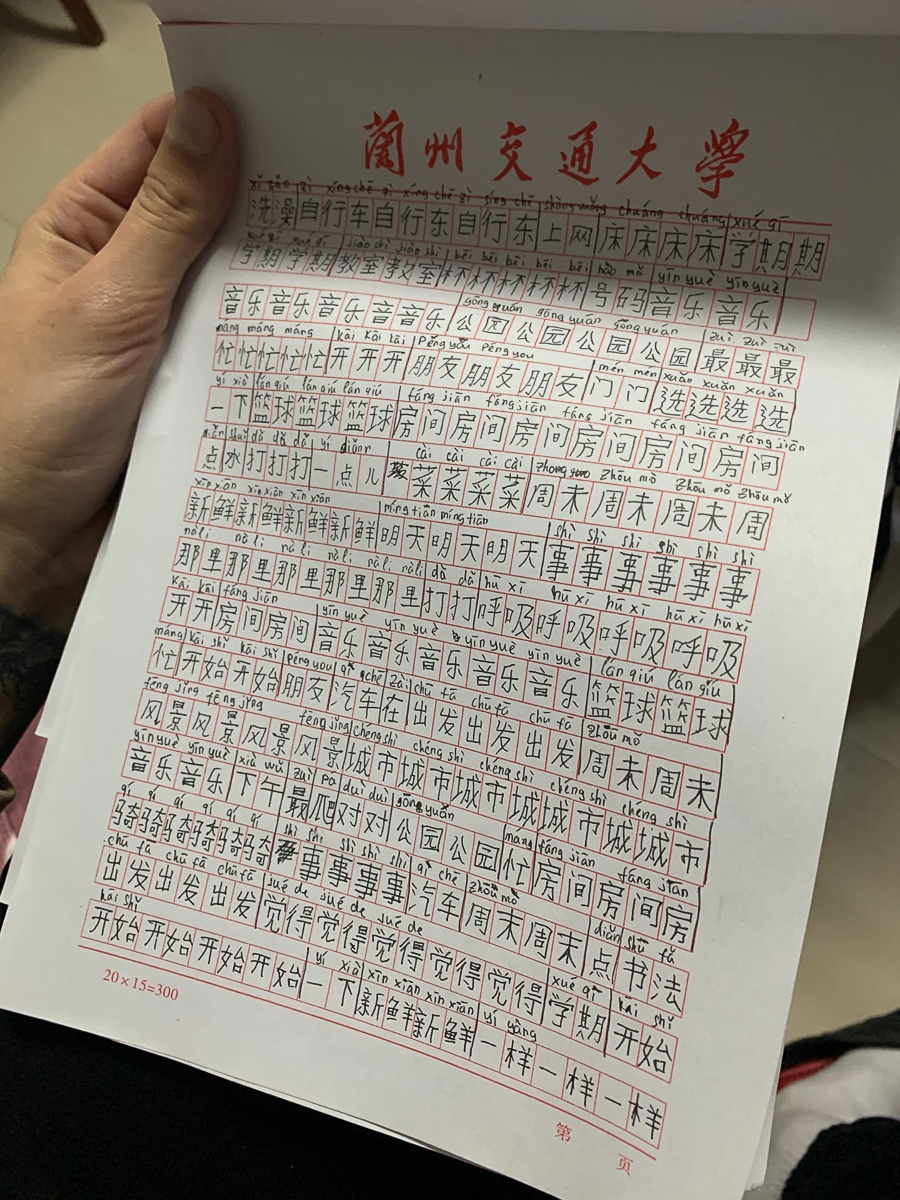 蘭州交通大學
xǐ zǎo zì xíng chē zì xíng chē zì síng chē shàng wǎng chuáng chuáng xué qī
洗澡自行车自行东自行东上网床床床床学期期
xué qī xué qī jiào shì jiào shì bēi bēi bēi bēi bēi hào mǎ yīn yuè yīn yuè
学期学期教室教室杯杯杯杯杯号码音乐音乐
gōng yuán gōng yuán gōng yuán zuì zuì zuì
音乐音乐音乐音音乐公园公园公园公园最最最
máng máng máng kāi kāi kāi péng you péng you mén mén xuǎn xuǎn xuǎn
忙忙忙忙忙开开开朋友朋友朋友门门选选选选
yí xià lán qiú lán qiú lán qiú fáng jiān fáng jiān fáng jiān fáng jiān fáng jiān
一下篮球篮球篮球房间房间房间房间房间房间
diǎn shuǐ dǎ dǎ dǎ yì diǎnr cài cài cài cài zhōu mò zhōu mò zhōu mò
点水打打打一点儿菜菜菜菜周末周末周末周
xīn xiān xīn xiān xīn xiān míng tiān míng tiān shì shì shì shì shì shì
新鲜新鲜新鲜新鲜明天明天明天事事事事事事
nà li nà li nà li nà li nà li dǎ dǎ hū xī hū xī hū xī hū xī hū xī
那里那里那里那里那里打打呼吸呼吸呼吸呼吸
kāi kāi fáng jiān yīn yuè yīn yuè yīn yuè yīn yuè lán qiú lán qiú
开开房间房间音乐音乐音乐音乐音乐篮球篮球
máng kāi shǐ kāi shǐ péng you qì chē zài chū fā chū fā chū fā zhōu mò
忙开始开始朋友汽车在出发出发出发周末周末
fēng jǐng fēng jǐng fēng jǐng chéng shì chéng shì chéng shì chéng shì
风景风景风景风景城市城市城市城城市城城市
yīn yuè yīn yuè xià wǔ zuì pá duì duì gōng yuán máng fáng jiān fáng jiān
音乐音乐下午最爬对对公园公园忙房间房间房
qí qí qí qí qí shì shì shì shì shì qì chē zhōu mò diǎn shū fǎ
骑骑骑骑骑骑事事事事汽车周末周末点书法
chū fā chū fā chū fā jué de jué de jué de xué qī kāi shǐ
出发出发出发觉得觉得觉得觉得觉得学期开始
kāi shǐ yí xià xīn xiān xīn xiān yí yàng
开始开始开始开始一下新鲜新鲜一样一样一样
20×15=300
第 页